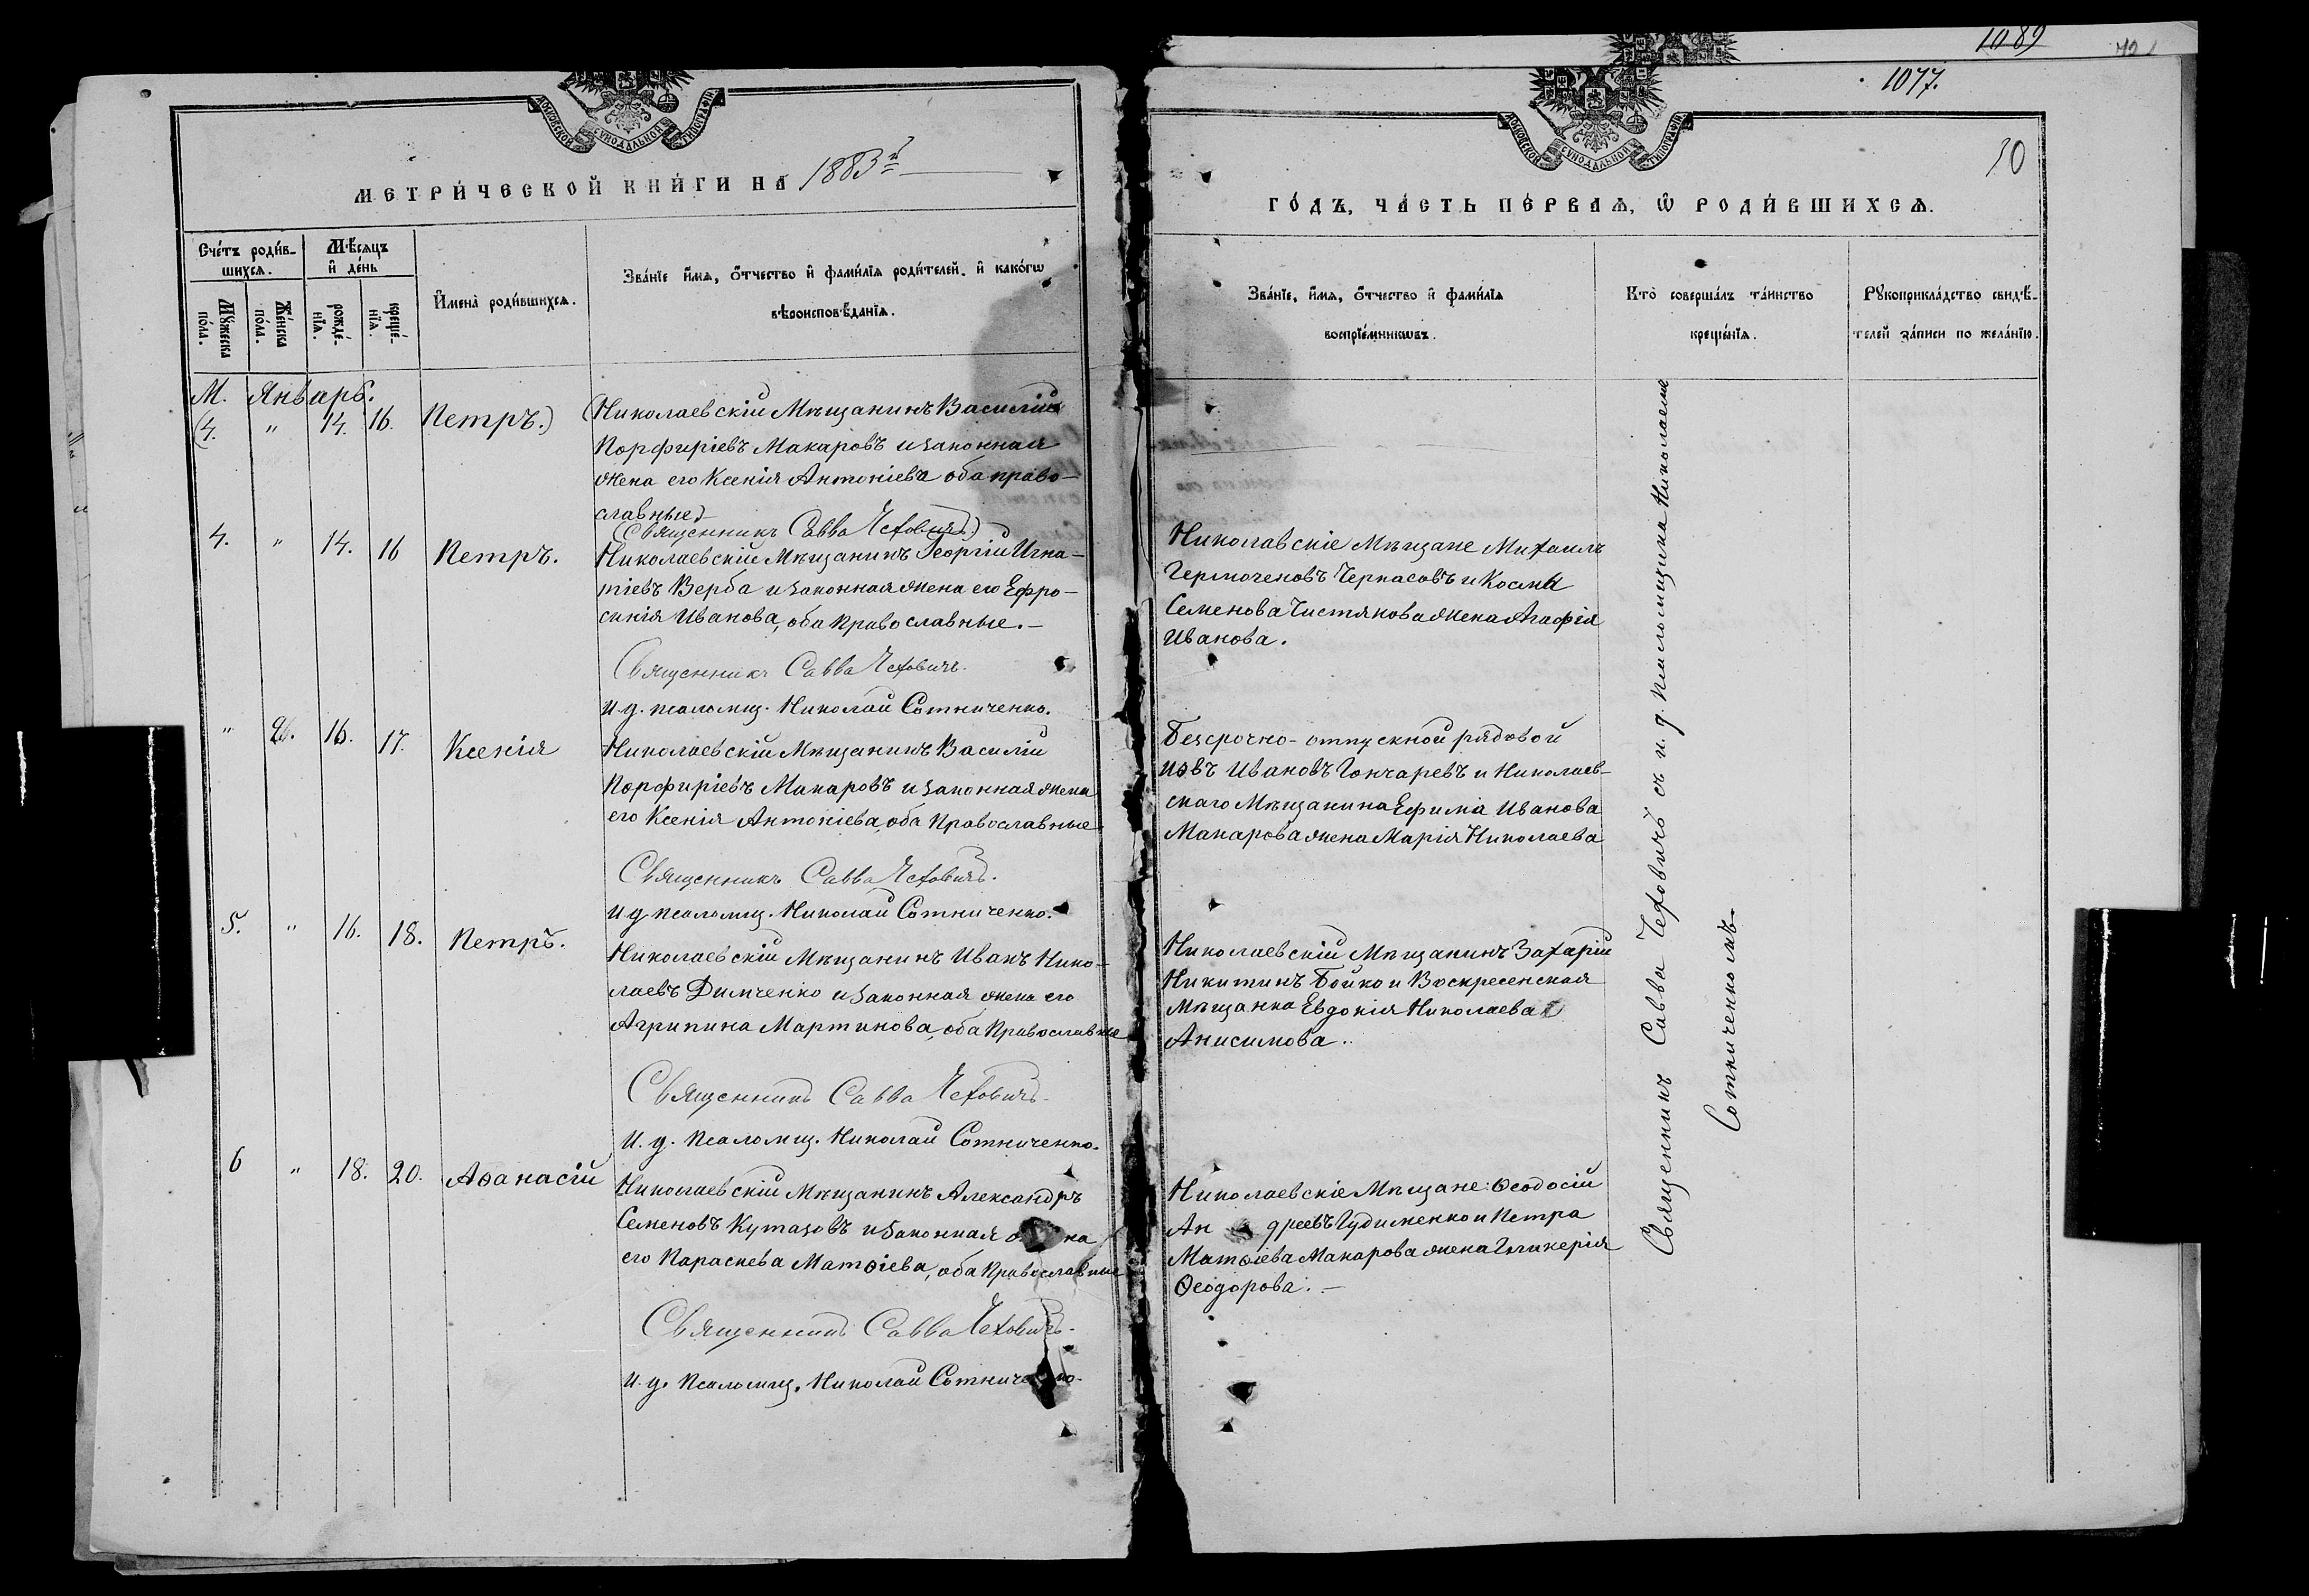 1089
1077.
МОСКОВСКОЙ СУНОДАЛЬНОЙ ТИПОГРАФІИ
МОСКОВСКОЙ СУНОДАЛЬНОЙ ТИПОГРАФІИ
МЕТРИ́ЧЕСКОЙ КНИ́ГИ НА 1883й
ГО́ДЪ, ЧА́СТЬ ПЕ́РВАѦ, Ѡ РОДИ́ВШИХСѦ.
Счетъ роди́в-
шихсѧ.
Мѣсѧцъ
и де́нь
Мꙋжеска по́ла.
Же́нска по́ла.
рожде́-нїѧ.
креще́-нїѧ.
Имена̀ роди́вшихсѧ.
Зва́нїе имѧ, о́тчество и фами́лїѧ роди́телей. и како́гѡ
вѣроисповѣданїѧ.
Зва́нїе, имѧ, о́тчество и фами́лїѧ
воспрїе́мникѡвъ.
Кто̀ соверша́лъ та́инство
креще́нїѧ.
Рꙋкоприкла́дство свидѣ-
телей за́писи по жела́нїю.
М. Январь.
(4. " 14. 16. Петръ.) (Николаевскій Мѣщанинъ Василій
Порфиріевъ Макаровъ и законная
жена его Ксенія Антоніева оба право-
славные)
(Священникъ Савва Чеховичъ)
4. " 14. 16 Петръ. Николаевскій Мѣщанинъ Георгій Игна-
тіевъ Верба и законная жена его Ефро-
синія Иванова, оба православные.-
Священникъ Савва Чеховичъ
И. д. псаломщ. Николай Сотниченко.
Николавскіе Мѣщане Михаилъ
Гермогеновъ Черкасовъ и Космы
Семенова Чистякова жена Агафія
Иванова.
" 2. 16. 17. Ксенія Николаевскій Мѣщанинъ Василій
Порфиріевъ Макаровъ и законная жена
его Ксенія Антоніева, оба Православные.
Священникъ Савва Чеховичъ.
И д псаломщ. Николай Сотниченко.
Безсрочно-отпускной рядовой
Иовъ Ивановъ Гончаревъ и Николаев-
скаго Мѣщанина Ефима Иванова
Макарова жена Марія Николаева
5. " 16. 18. Петръ. Николаевскій Мѣщанинъ Иванъ Нико-
лаевъ Димченко и законная жена его
Агрипина Мартинова, оба Православные
Священникъ Савва Чеховичъ-
И. д. Псаломщ. Николай Сотниченко.
Николаевскій Мѣщанинъ Захарій
Никитинъ Бойко и Воскресенская
Мѣщанка Евдокія Николаева
Анисимова..
6 " 18. 20. Аѳанасій Николаевскій Мѣщанинъ Александръ
Семеновъ Кутазовъ и законная жена
его Параскева Матѳіева, оба Православные
Священникъ Савва Чеховичъ-
И. д. Псаломщ. Николай Сотниченко-
Николаевскіе Мѣщане: Ѳеодосій
Андреевъ Гудименко и Петра
Матѳіева Макарова жена Гликерія
Ѳеодорова.-
Священникъ Савва Чеховичъ съ и. д. псаломщика Николаемъ
Сотниченкомъ